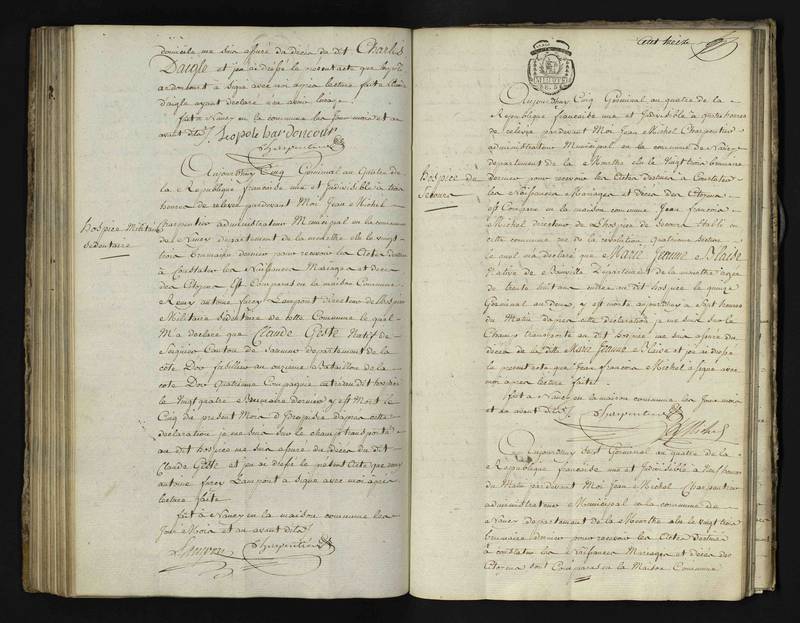 domicile me suis assuré du décès du dit Charles
Daigle et j'ai dressé le présent acte que
a signé avec moi après lecture faite
daigle ayant déclaré ne savoir
fait à Nancy en la commune les jour mois et an
avant dits
Leopole hardoncour
Charpentier
Aujourdhuy Cinq Germinal an Quatre de
la Republique francoise une et Indivisible à trois
heures de relevée pardevant Moi Jean Michel
Hospice Militaire
sedentaire
Charpentier administrateur Municipal en la commune
de Nancy departement de la meurthe élu le vingt
trois Brumaire dernier pour recevoir les Actes destinés
à Constater les Naissances Mariages et décès
des Citoyens Est Comparu en la maison Commune
Remy antoine furcy Lampont directeur de L'hospice
Militaire Sédentaire de cette Commune le quel
M'a declaré que Claude Geste Natif de
Canton de departement de la
côte Dor fusilier au onzieme Bataillon de la
côte Dor Quatrieme Compagnie entré au dit hospice
le Vingt quatre Brumaire dernier y est Mort le
Cinq du present Mois D'
declaration je me suis sur le champ transporté
au dit hospice me suis assuré du décès du dit
Claude Geste et j'ai dressé le présent Acte que
antoine furcy Lampont a signé avec moi après
lecture faite
fait à Nancy en la maison commune les
Jour Mois et an avant dits
Charpentier
Cent treize
Aujourdhuy Cinq Germinal an quatre de la
Republique francoise une et Indivisible à quatre heures
de relevée pardevant Moi Jean Michel Charpentier
administrateur Municipal en la commune de Nancy
departement de la Meurthe élu le vingt trois Brumaire
Hospice de
Secours
dernier pour recevoir les Actes destinés à Constater
les Naissances Mariages et décès des Citoyens
est Comparu en la maison commune Jean francois
Michel directeur de L'hospice de Secours Etabli en
cette commune rue de la révolution quatrieme section
le quel m'a déclaré que Marie Jeanne Blaise
Native de Departement de la meurthe agée
de trente huit ans entrée au dit hospice le quinze
Germinal an deux y est morte aujourdhuy à Sept heures
du Matin d'après cette déclaration je me suis sur le
Champ transporté au dit hospice me suis assuré du
décès de la ditte Marie Jeanne Blaise et j'ai dressé
le présent acte que Jean francois Michel à signé avec
moi après lecture faite
fait à Nancy en la maison commune les Jour mois
et an avant dits
Charpentier
Michel
Aujourdhuy Sept Germinal an quatre de la
Republique francoise une et Indivisible à heures
du Matin pardevant Moi Jean Michel Charpentier
administrateur Municipal en la commune de
Nancy departement de la Meurthe élu le vingt trois
brumaire dernier pour recevoir les Actes Destinés
à constater les Naissances Mariages et décès des
Citoyens sont Comparus en la Maison Commune